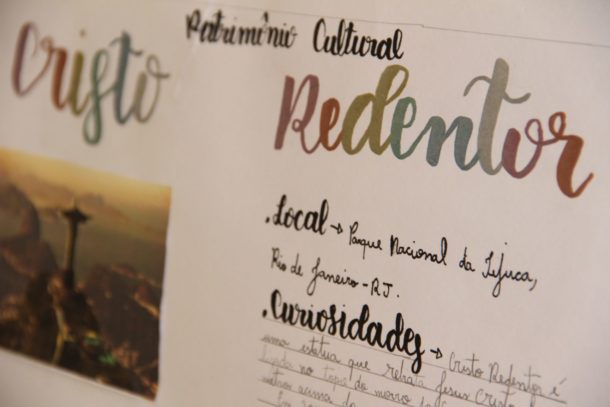 Patrimônio Cultural
Cristo Redentor
.Local → Parque Nacional da Tijuca,
Rio de Janeiro - RJ.
.Curiosidades → Cristo Redentor é
uma estátua que retrata Jesus Crist
no topo do morro do
metros acima do